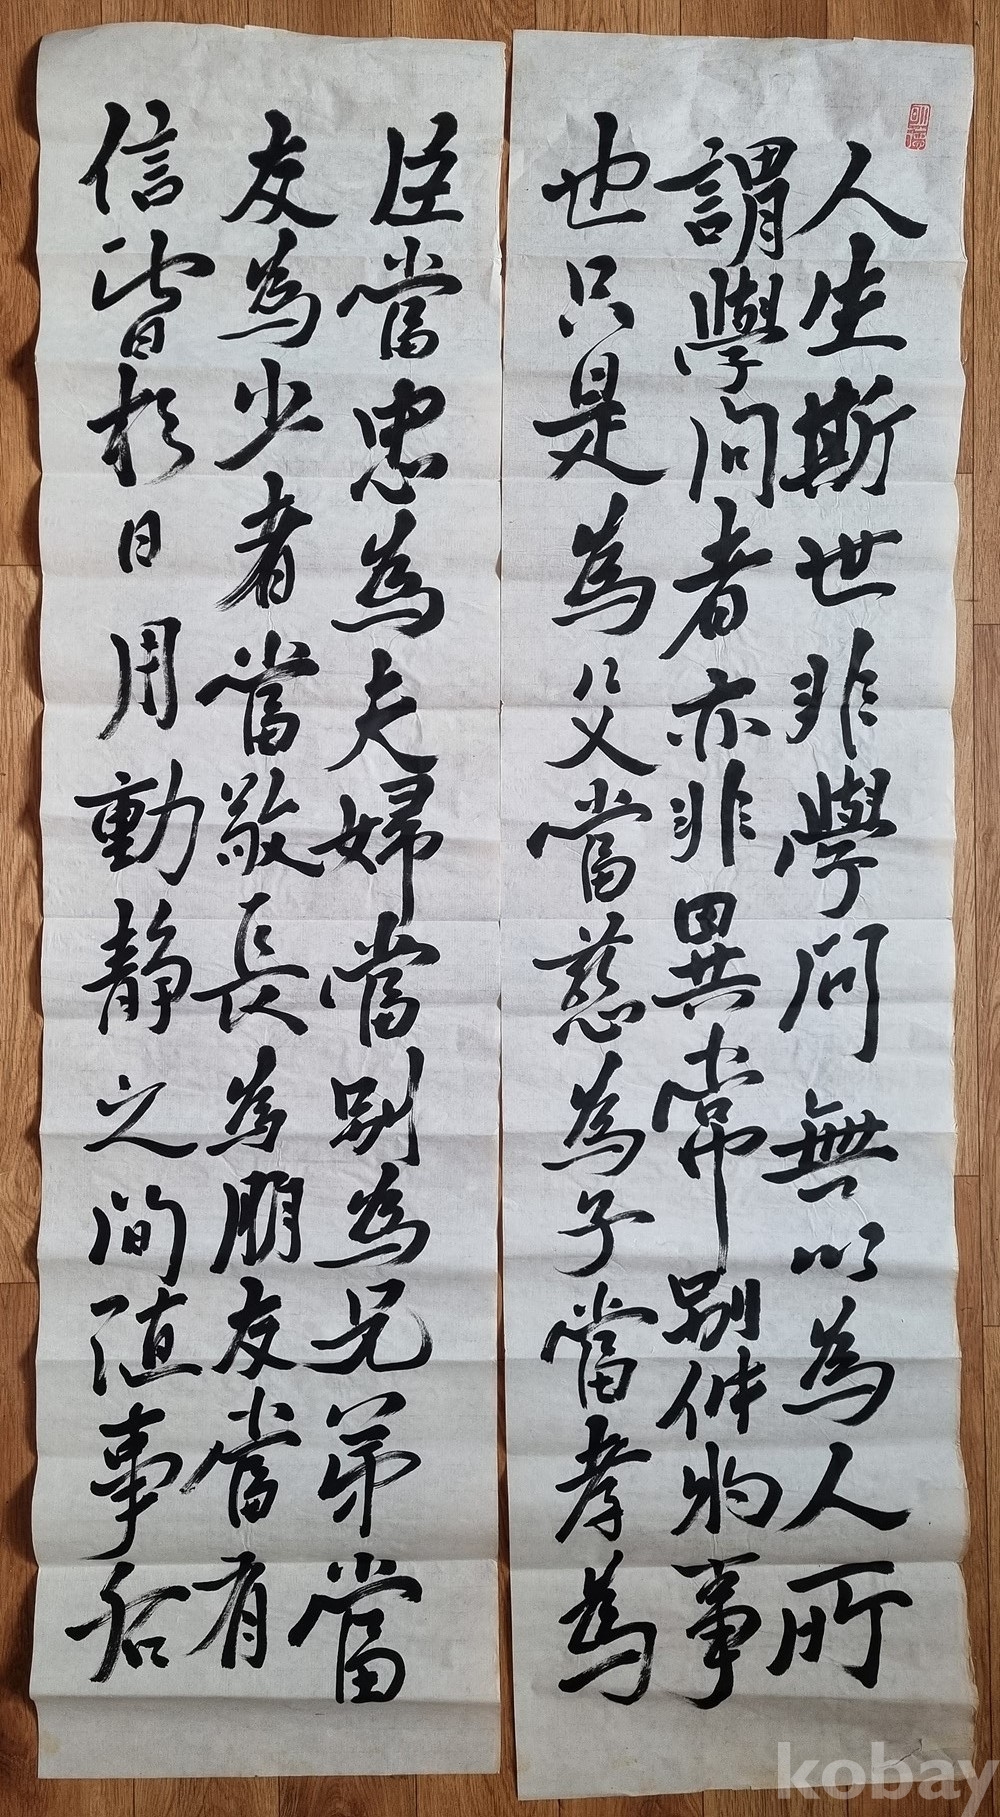 明德
人生斯世非學問無以為人所
謂學問者亦非異常別件物事
也只是為父當慈為子當孝為
臣當忠為夫婦當別為兄弟當
友為少者當敬長為朋友當有
信皆於日用動静之間隨事各
kobay